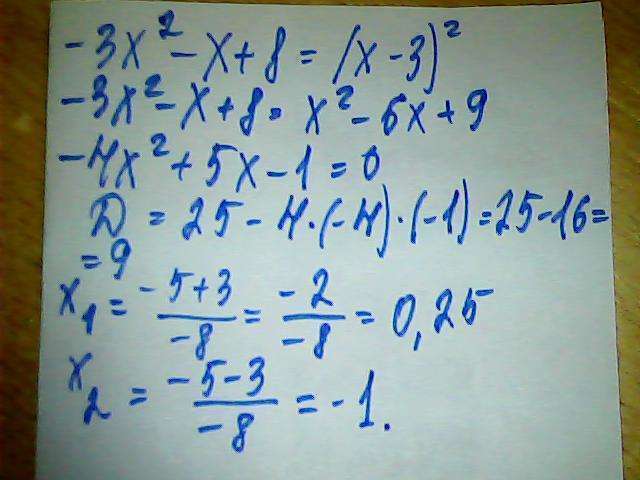 -3x² - x + 8 = (x - 3)²
-3x² - x + 8 = x² - 6x + 9
-4x² + 5x - 1 = 0
D = 25 - 4·(-4)·(-1) = 25 - 16 =
= 9
x₁ = (-5+3)/(-8) = (-2)/(-8) = 0,25
x₂ = (-5-3)/(-8) = -1.